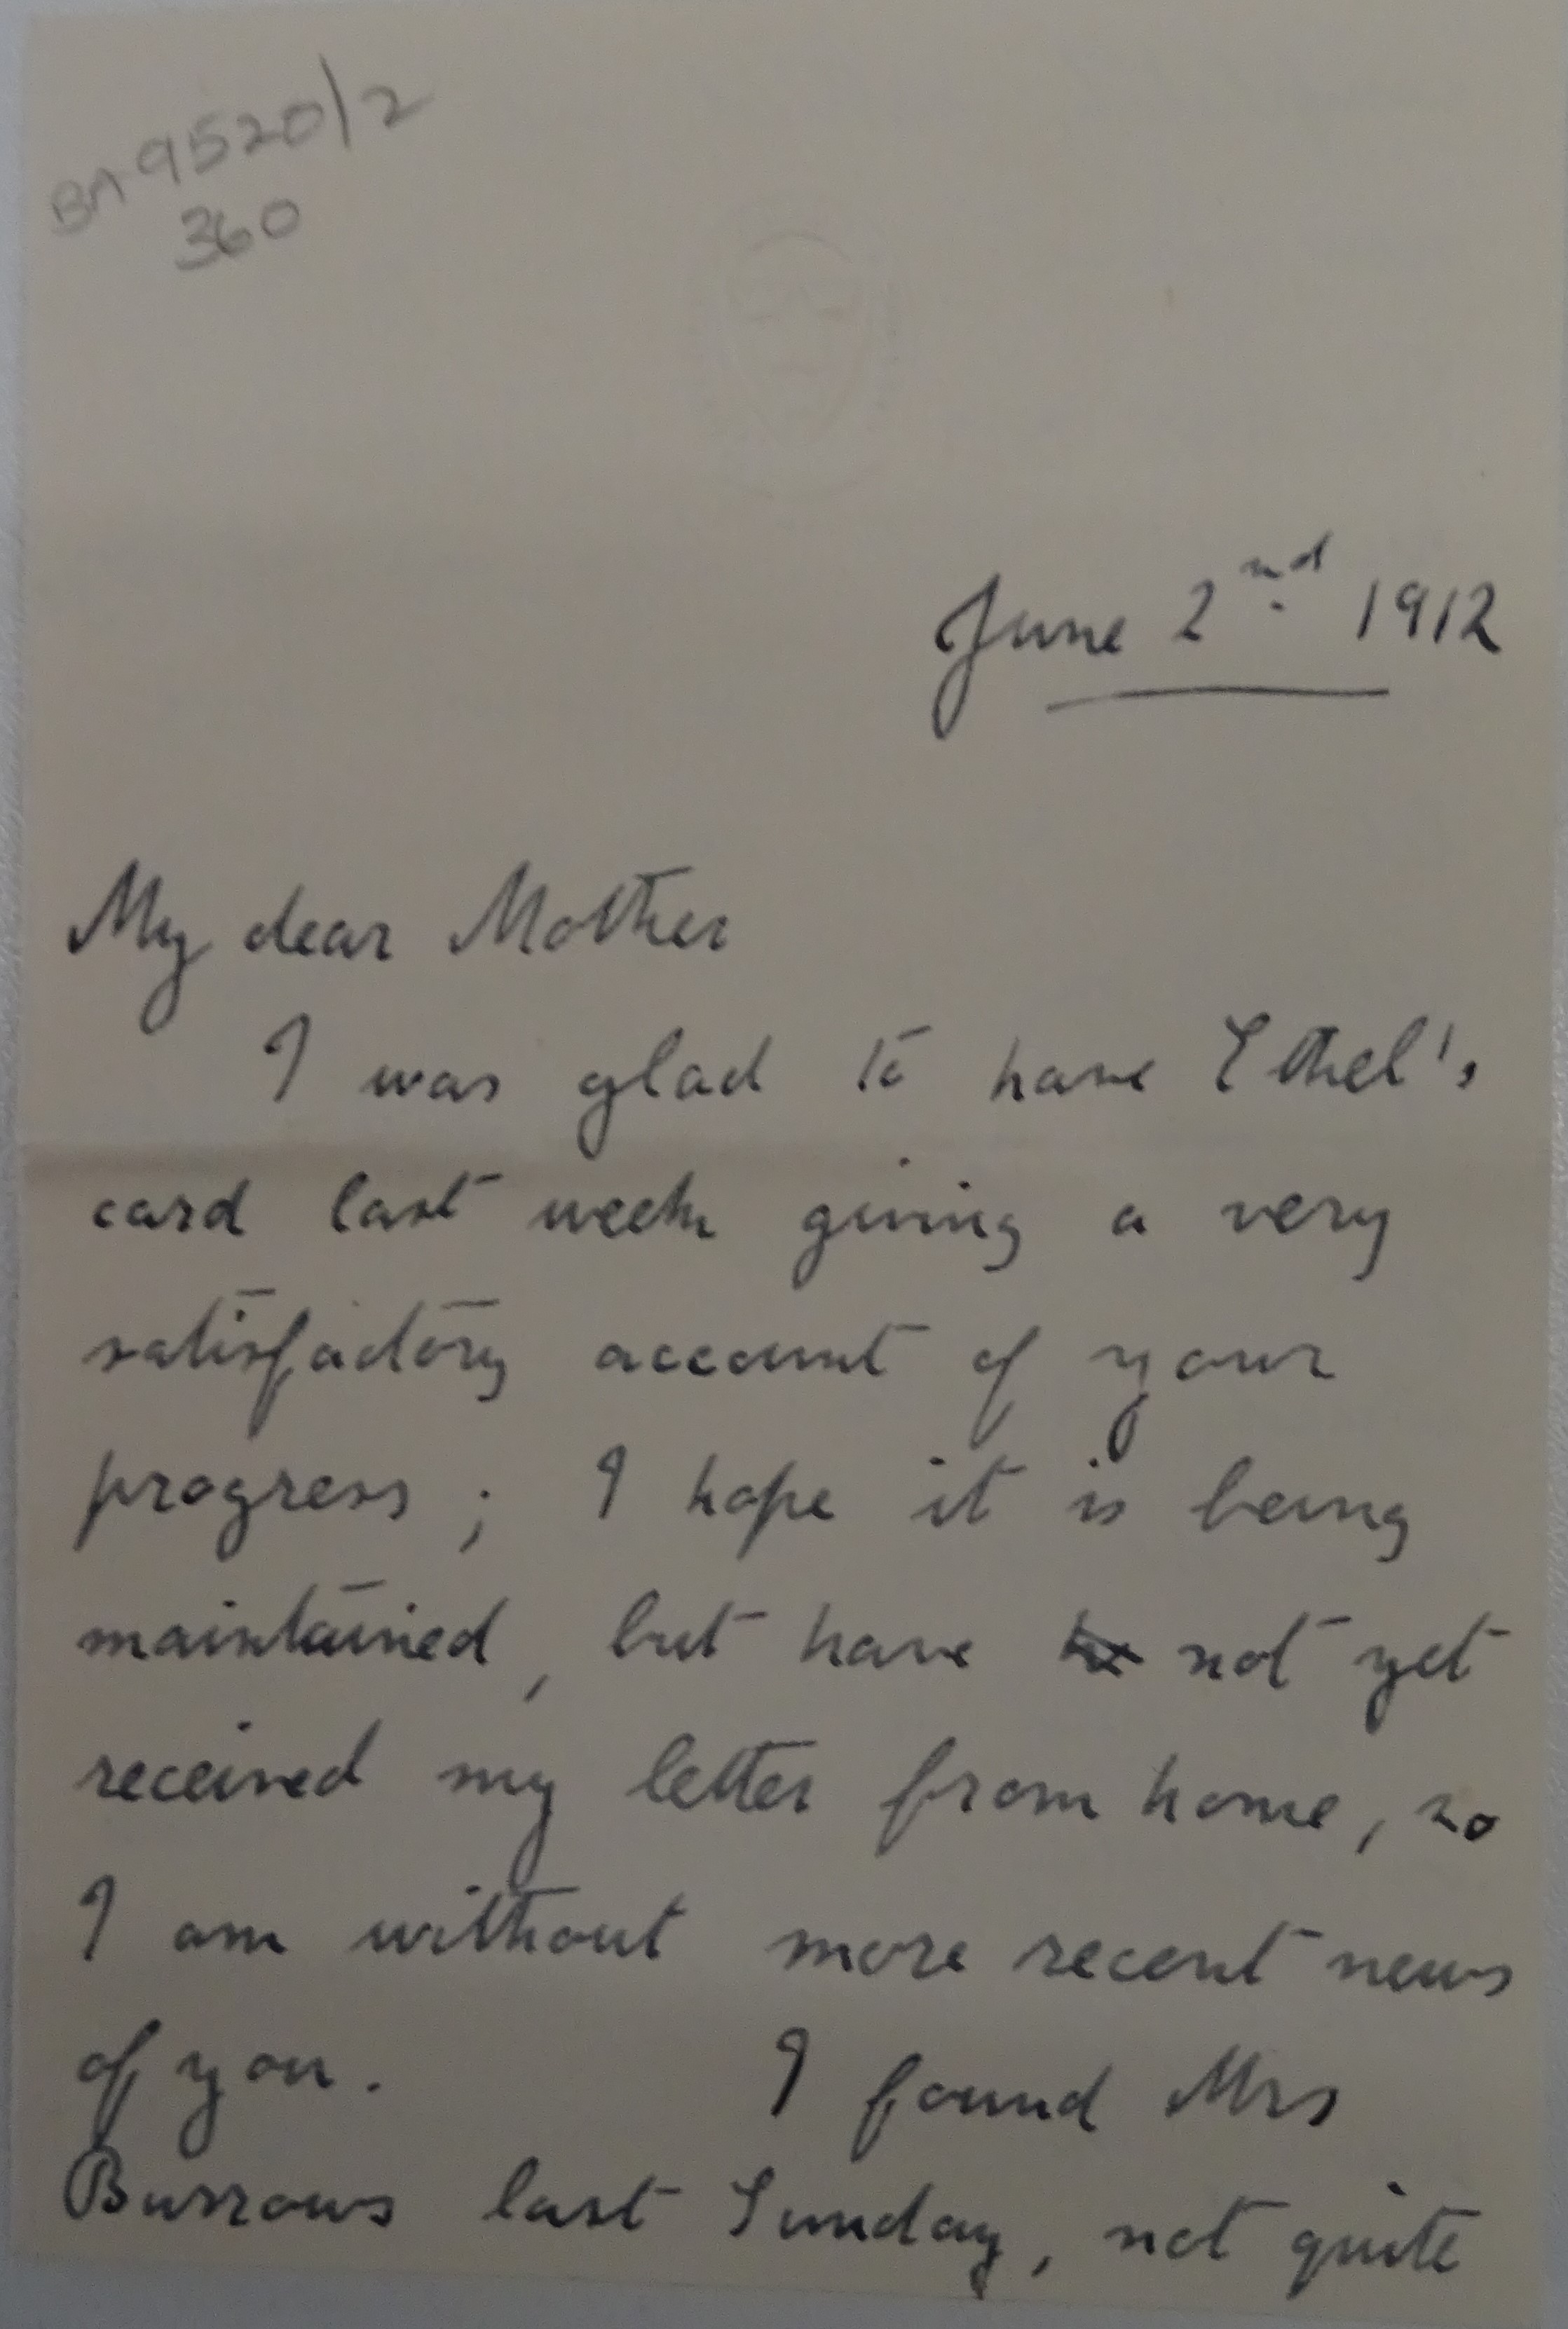 BA 9520/2
360
June 2nd 1912
My dear Mother
I was glad to have Ethel's
card last week giving a very
satisfactory account of your
progress ; I hope it is being
maintained, but have not yet
received my letter from home, so
I am without more recent news
of you. I found Mrs
Burrows last Sunday, not quite